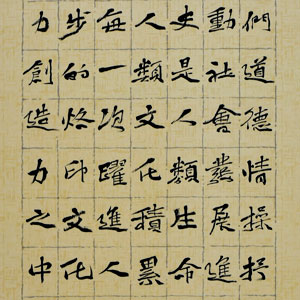 們道德情操於
動社會發展進
史是人類生命
人類文化積累
每一次躍進人
步的烙印文化
力創造力之中